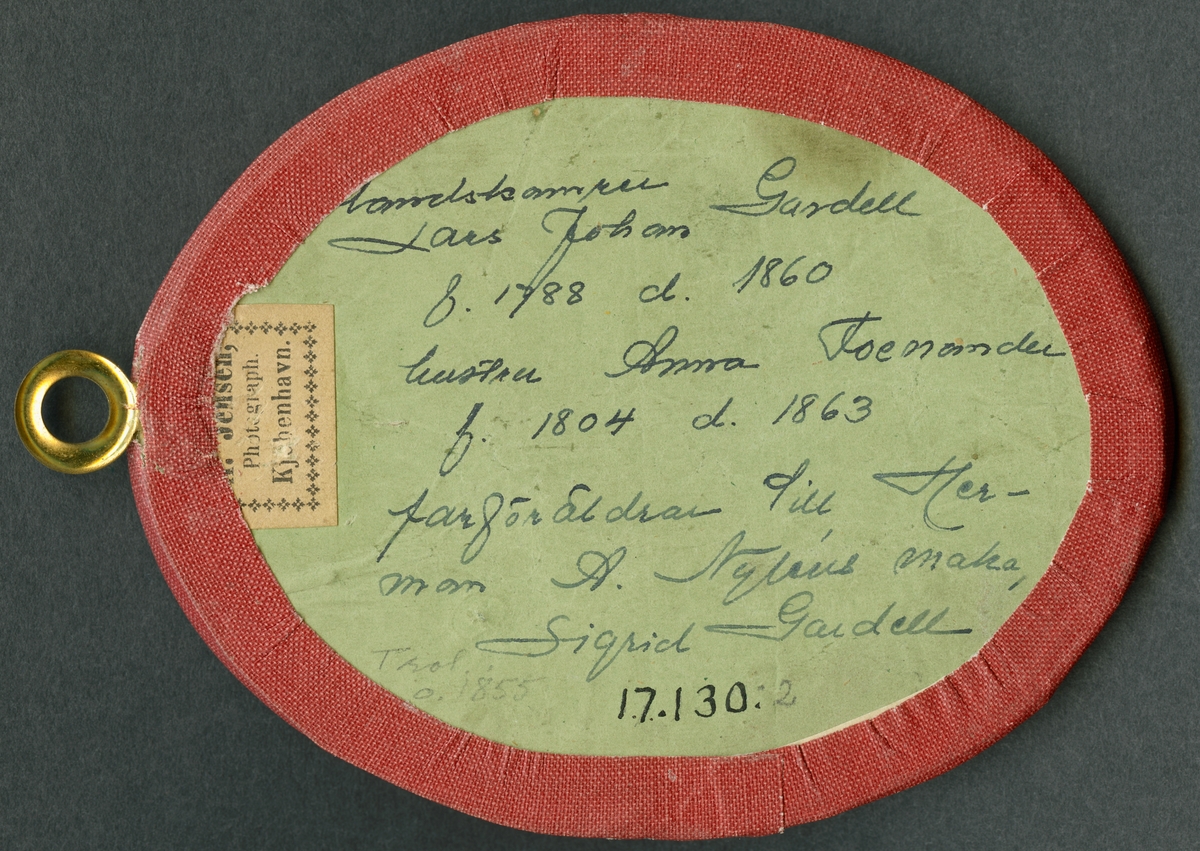 Landskamrer Gardell
Lars Johan
f. 1788 d. 1860
hustru Anna Foenander
f. 1804 d. 1863
farföräldrar till Her-
man A. Nyléus maka,
Sigrid Gardell
Trol.
o. 1855
17.130.2
Jensen,
Photograph.
Kjøbenhavn.